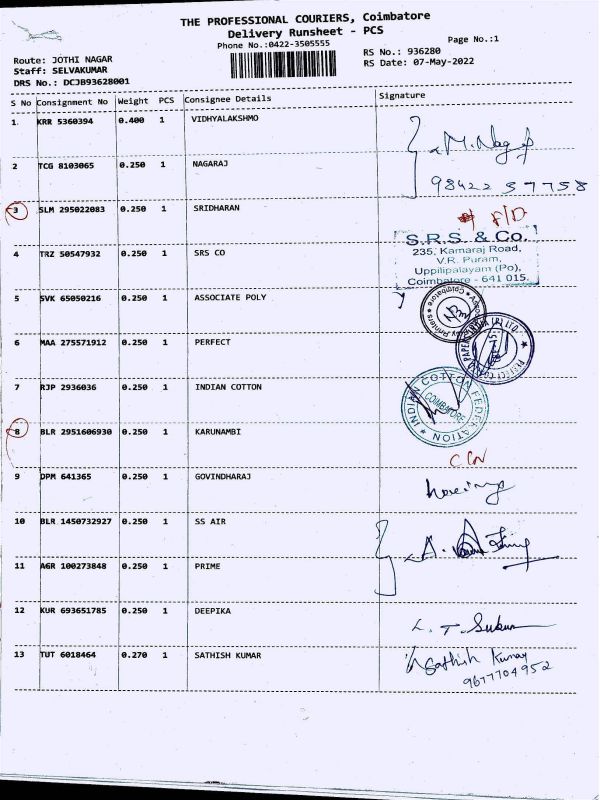 THE PROFESSIONAL COURIERS, Coimbatore
Delivery Runsheet - PCS
Phone No.:0422-3505555
Page No.:1
Route: JOTHI NAGAR
Staff: SELVAKUMAR
DRS No.: DCJB93628001
RS No.: 936280
RS Date: 07-May-2022
S No Consignment No Weight PCS Consignee Details Signature
1. KRR 5360394 0.400 1 VIDHYALAKSHMO
2 TCG 8103065 0.250 1 NAGARAJ
98422 57758
3 SLM 295022083 0.250 1 SRIDHARAN F/D
4 TRZ 50547932 0.250 1 SRS CO
S.R.S. & Co.
235, Kamaraj Road,
V.R. Puram,
Uppilipalayam (Po),
Coimbatore - 641 015.
5 SVK 65050216 0.250 1 ASSOCIATE POLY
6 MAA 275571912 0.250 1 PERFECT
7 RJP 2936036 0.250 1 INDIAN COTTON
INDIAN COTTON FEDERATION
COIMBATORE
8 BLR 2951606930 0.250 1 KARUNAMBI
9 DPM 641365 0.250 1 GOVINDHARAJ
10 BLR 1450732927 0.250 1 SS AIR
11 AGR 100273848 0.250 1 PRIME
12 KUR 693651785 0.250 1 DEEPIKA
13 TUT 6018464 0.270 1 SATHISH KUMAR
Sathish Kumar
9677704952